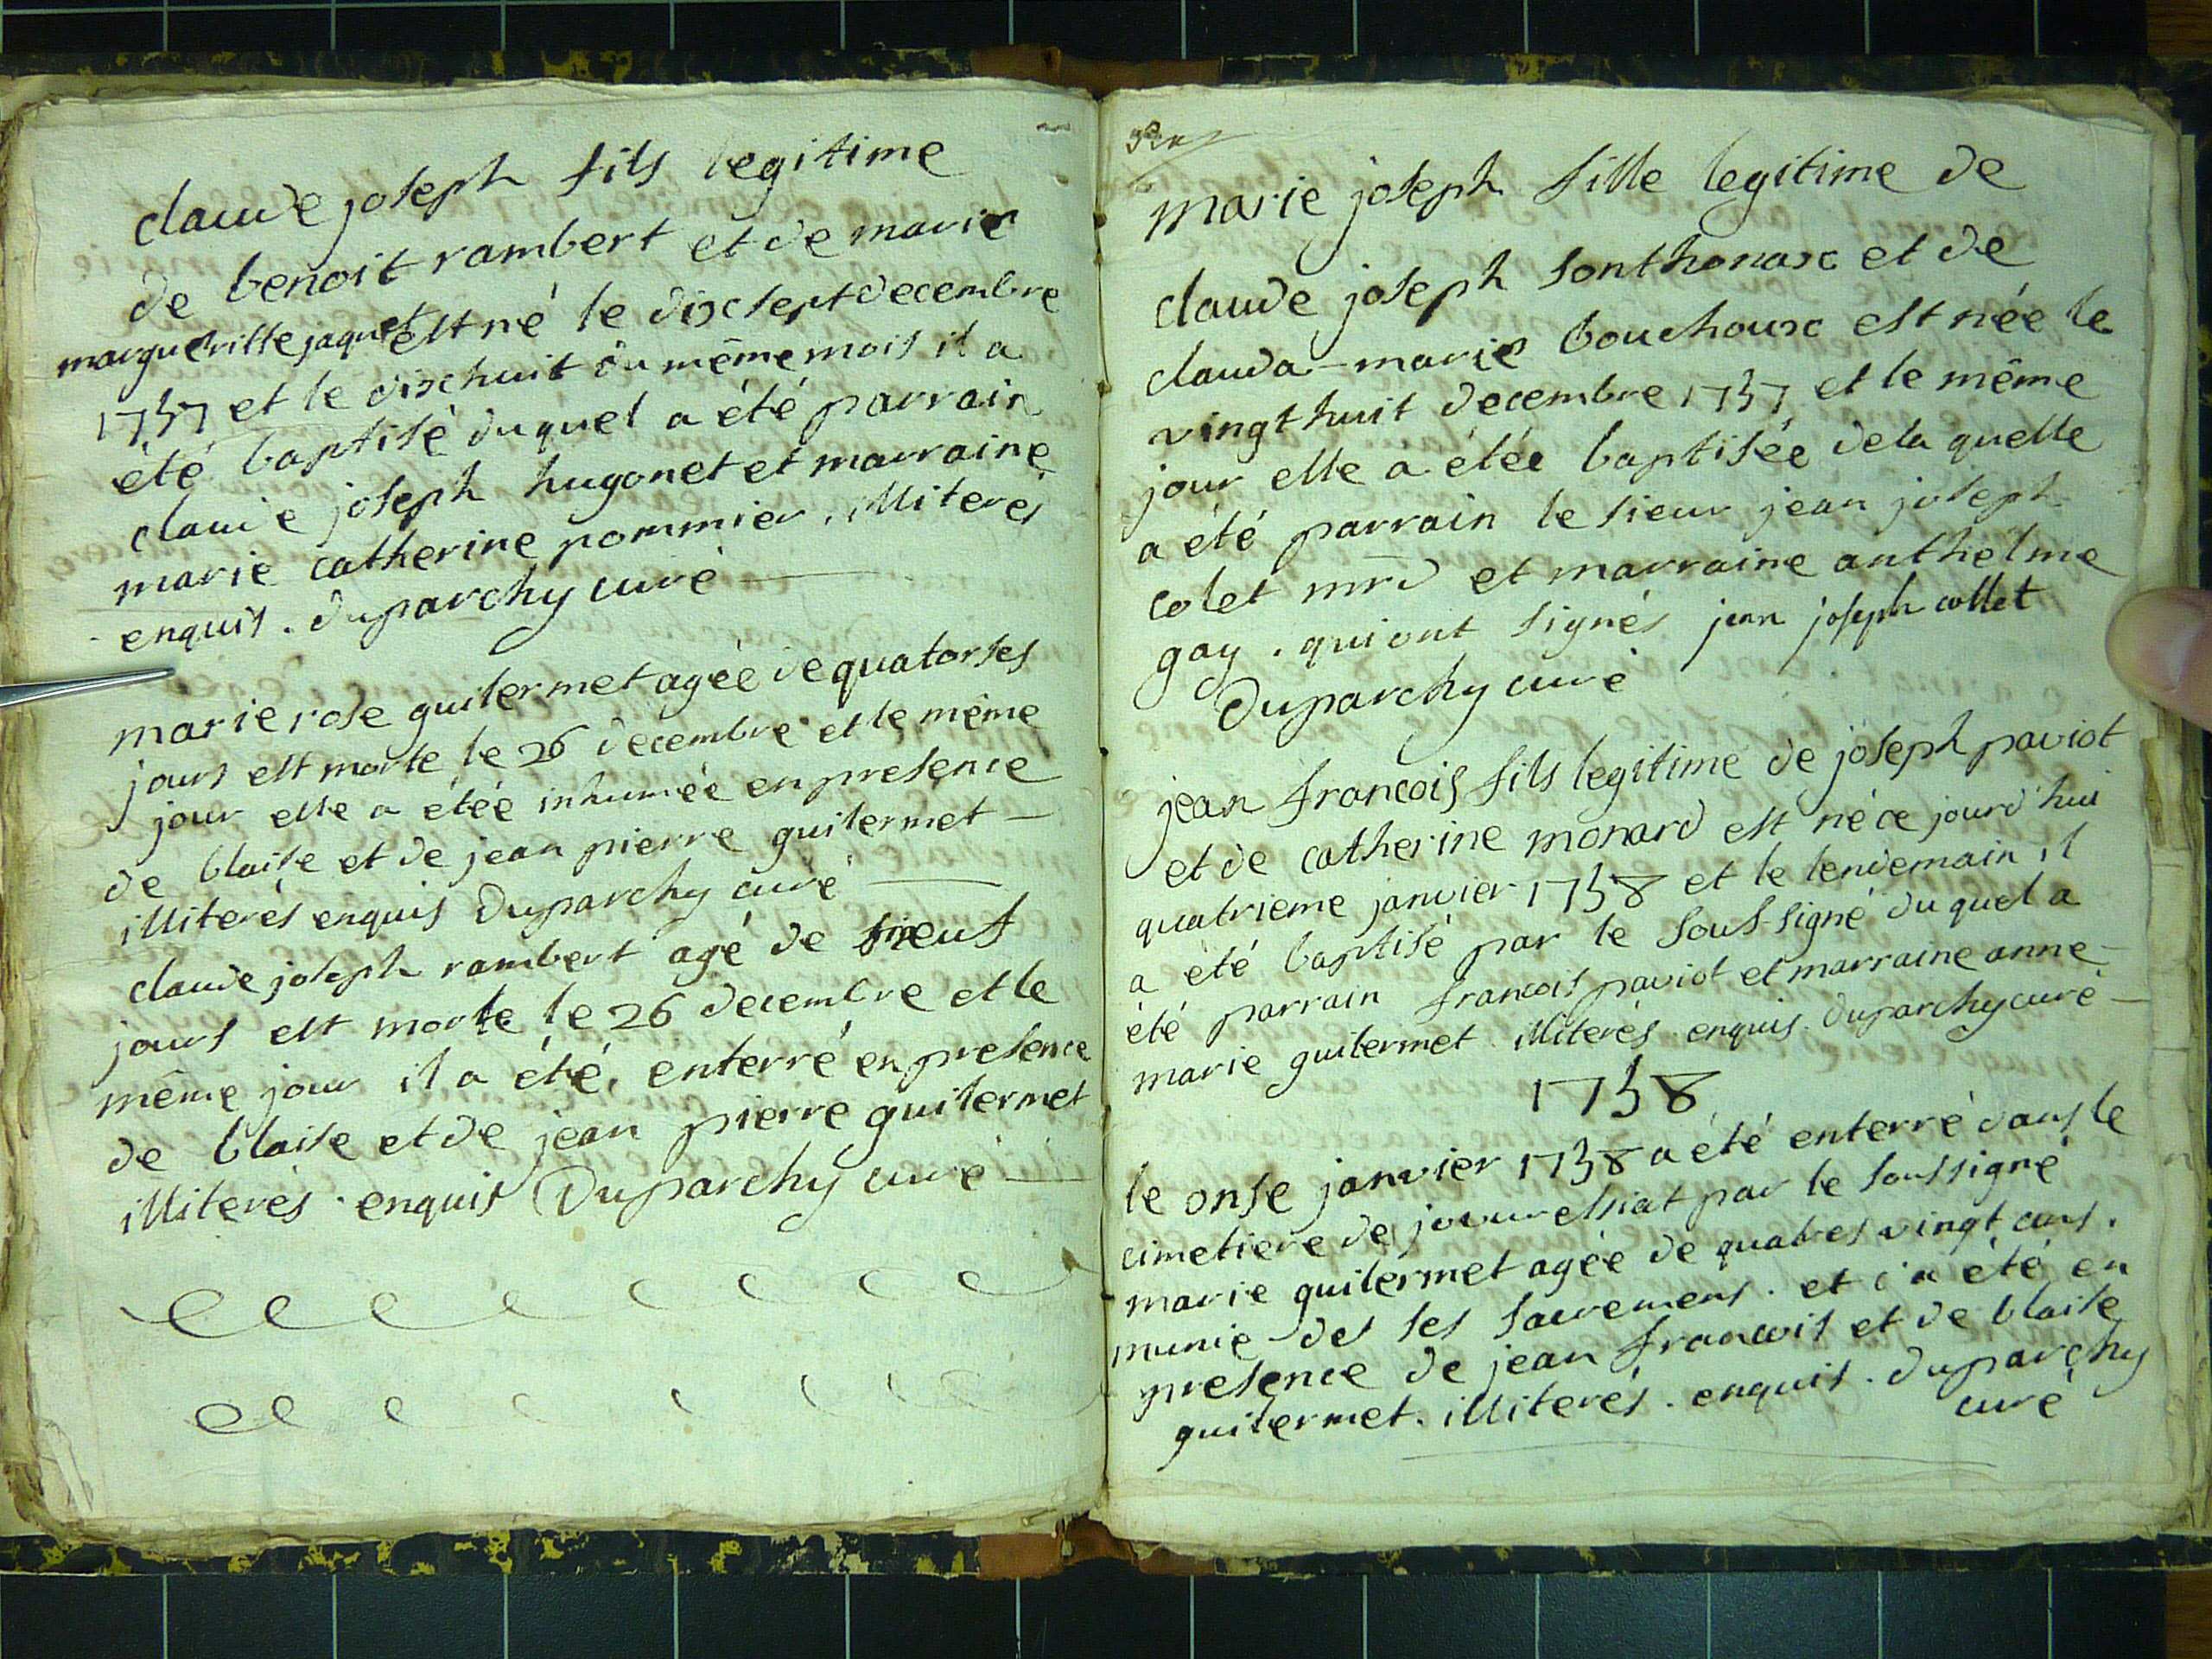 claude joseph fils legitime
de benoit rambert et de marie
margueritte jaquet est né le dixsept decembre
1737 et le dixhuit du même mois il a
été baptisé duquel a été parrain
claude joseph hugonet et marraine
marie catherine pommier. illiterés
enquis. duparchy curé
marie rose guilermet agée de quatorses
jours est morte le 26 decembre et le même
jour elle a étée inhumée en presence
de blaise et de jean pierre guilermet
illiterés enquis Duparchy curé
claude joseph rambert agé de neuf
jours est morte le 26 decembre et le
même jour il a été enterré en presence
de blaise et de jean pierre guilermet
illiterés. enquis Duparchy curé
marie joseph fille legitime de
claude joseph sonthonax et de
clauda-marie bouchoux est née le
vingt huit decembre 1737 et le même
jour elle a étée baptisée de la quelle
a été parrain le sieur jean joseph
colet mrd et marraine anthelme
gay. qui ont signés jean joseph collet
Duparchy curé
jean francois fils legitime de joseph paviot
et de catherine monard est né ce jourd'hui
quatrieme janvier 1738 et le lendemain il
a été baptisé par le sous-signé du quel a
été parrain francois paviot et marraine anne
marie guilermet illiterés enquis. duparchy curé
1738
le onse janvier 1738 a été enterré dans le
cimetiere de par le soussigné
marie guilermet agée de quatres vingt ans.
munie des ses sacremens. et ç'a été en
presence de jean francois et de blaise
guilermet. illiterés. enquis. duparchy
curé